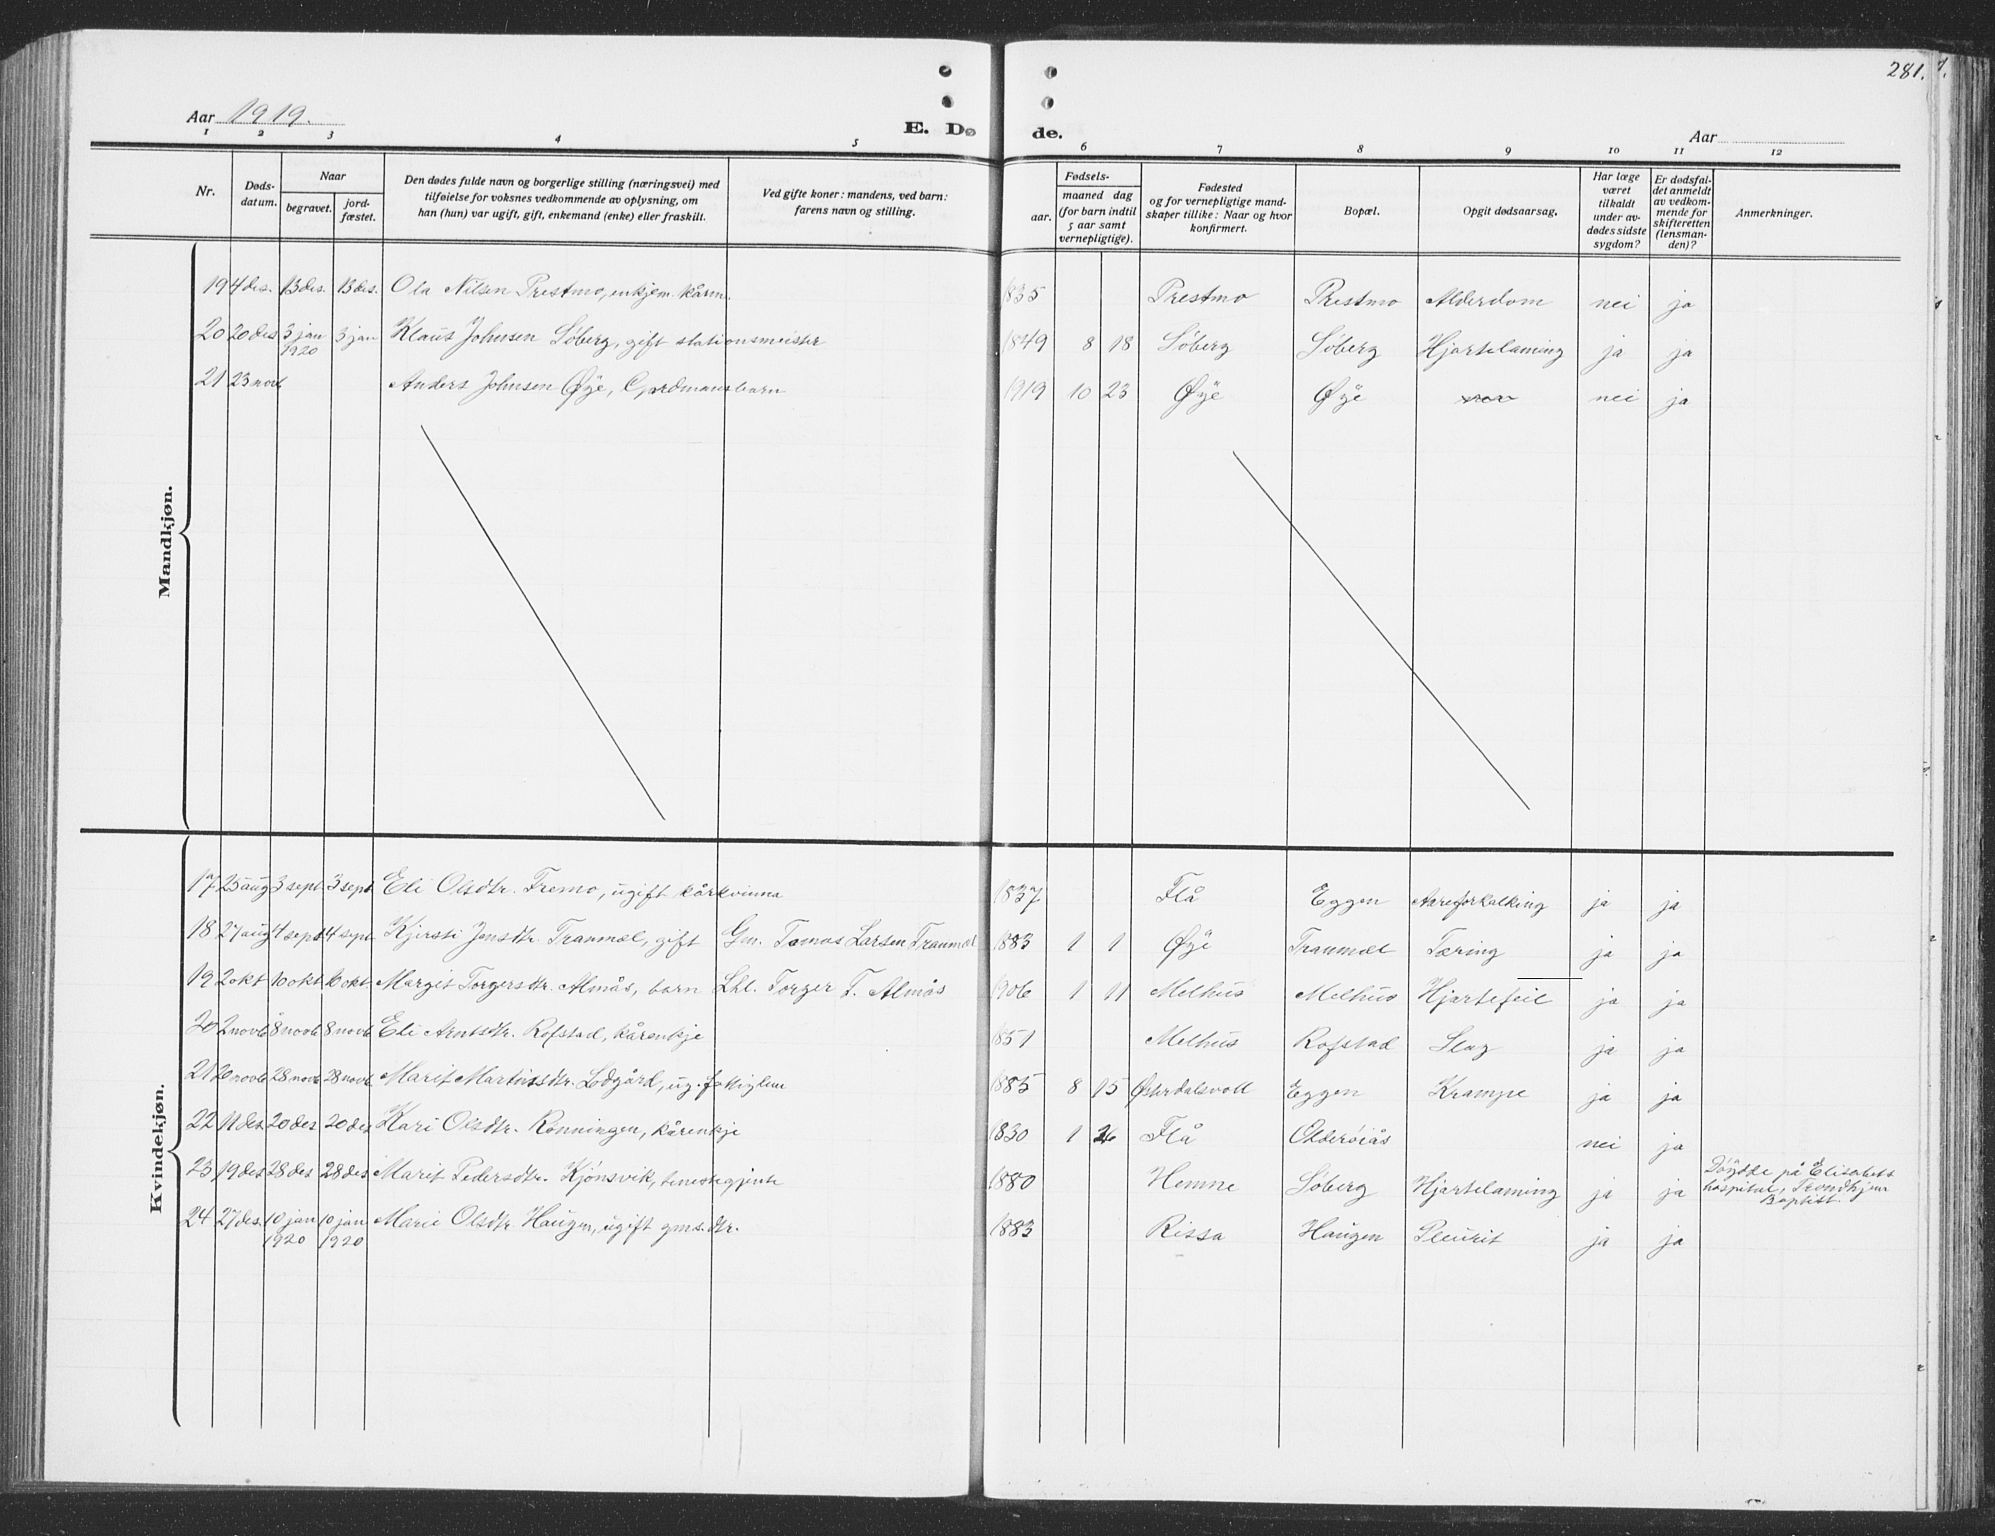 281.
Aar 1919.
E. Dø de.
Aar
1 2 3 4 5 6 7 8 9 10 11 12
Nr.
Døds-
datum.
Naar
begravet.
jord-
fæstet.
Den dødes fulde navn og borgerlige stilling (næringsvei) med
tilføielse for voksnes vedkommende av oplysning, om
han (hun) var ugift, gift, enkemand (enke) eller fraskilt.
Ved gifte koner: mandens, ved barn:
farens navn og stilling.
Fødsels-
aar.
maaned dag
(for barn indtil
5 aar samt
vernepligtige).
Fødested
og for vernepligtige mand-
skaper tillike: Naar og hvor
konfirmert.
Bopæl.
Opgit dødsaarsag.
Har læge
været
tilkaldt
under av-
dødes sidste
sygdom?
Er dødsfal-
det anmeldt
av vedkom-
mende for
skifteretten
(lensman-
den)?
Anmerkninger.
Mandkjøn.
19 4 des. 13 des. 13 des. Ola Nilsen Prestmo, enkjem. kårm. 1835 Prestmo Prestmo Alderdom nei ja
20 20 des 3 jan 1920 3 jan Klaus Johnsen Söberg, gift stationsmeister 1849 8 18 Söberg Söberg Hjartelaming ja ja
21 23 novb Anders Johnsen Øye, barn 1919 10 23 Øye Øye nei ja
Kvindekjøn.
17 25 aug 3 sept 3 sept Eli Olsdtr. Fremo, ugift kårkvinna 1837 Flå Eggen Aareforkalking ja ja
18 27 aug 4 sept 4 sept Kjersti Jensdtr. Tranmæl, gift Gm. Tomas Larsen Tranmæl 1883 1 1 Øye Tranmæl Tæring ja ja
19 2 okt 10 okt 10 okt. Margit Torgersdtr. Almås, barn Lhl. Torger T. Almås 1906 1 11 Melhus Melhus Hjartefeil ja ja
20 2 novb 8 novb 8 novb Eli Arntsdtr. Rofstad, kårenkje 1851 Melhus Rofstad Slag ja ja
21 26 novb 28 novb 28 novb Marit Martinsdtr. Lodgård, ug. fattiglem 1885 8 15 Eggen Krampe ja ja
22 11 des 20 des 20 des Kari Olsdtr. Rönningen, kårenkje 1830 1 26 Flå nei ja
23 19 des 28 des 28 des Marit Pedersdtr. Kjönsvik, tenestegjente 1880 Hemne Söberg Hjartelaming ja ja Döydde på Elisabets
hospital, Trondhjem
Baptist.
24 27 des. 10 jan 1920 10 jan 1920 Marie Olsdtr. Haugen, ugift gms. dtr. 1883 Rissa Haugen Pleurit ja ja